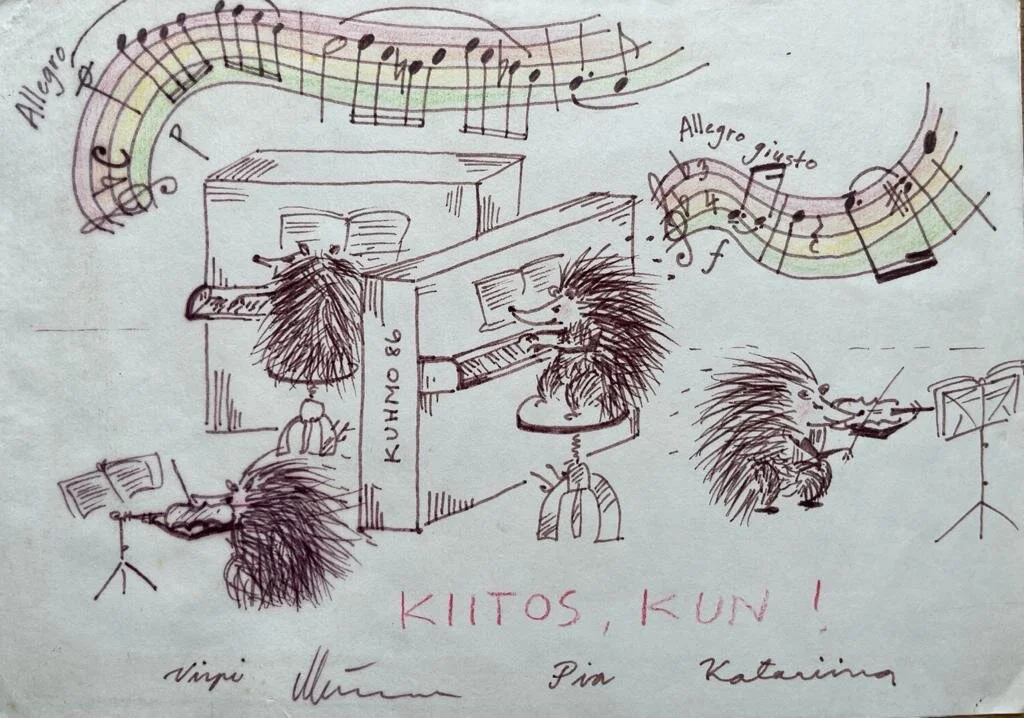 Allegro
P
Allegro giusto
3
4
f
KUHMO 86
KIITOS, KUN !
Virpi
Pia Katariina